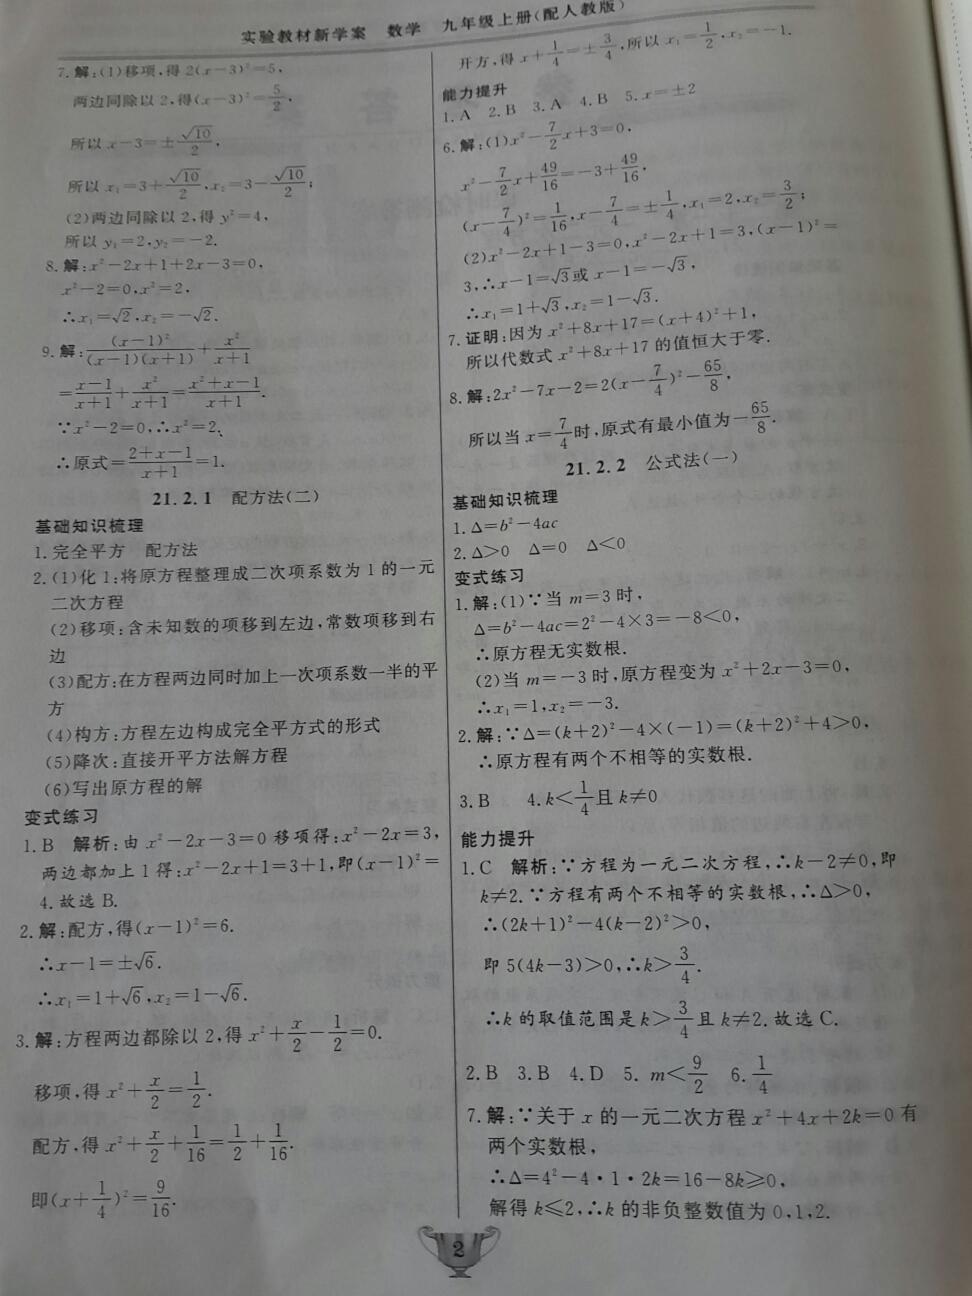 实验教材新学案 数学 九年级上册(配人教版)
7.解:(1)移项,得2(x-3)²=5,
两边同除以2,得(x-3)²=5/2,
所以x-3=±√10/2,
所以x₁=3+√10/2,x₂=3-√10/2;
(2)两边同除以2,得y²=4,
所以y₁=2,y₂=-2.
8.解:x²-2x+1+2x-3=0,
x²-2=0,x²=2,
∴x₁=√2,x₂=-√2.
9.解:(x-1)²/(x-1)(x+1)+x²/x+1
=x-1/x+1+x²/x+1=x²+x-1/x+1.
∵x²-2=0,∴x²=2,
∴原式=2+x-1/x+1=1.
21.2.1 配方法(二)
基础知识梳理
1.完全平方 配方法
2.(1)化1:将原方程整理成二次项系数为1的一元
二次方程
(2)移项:含未知数的项移到左边,常数项移到右
边
(3)配方:在方程两边同时加上一次项系数一半的平
方
(4)构方:方程左边构成完全平方式的形式
(5)降次:直接开平方法解方程
(6)写出原方程的解
变式练习
1.B 解析:由x²-2x-3=0移项得:x²-2x=3,
两边都加上1得:x²-2x+1=3+1,即(x-1)²=
4.故选B.
2.解:配方,得(x-1)²=6.
∴x-1=±√6.
∴x₁=1+√6,x₂=1-√6.
3.解:方程两边都除以2,得x²+x/2-1/2=0.
移项,得x²+x/2=1/2.
配方,得x²+x/2+1/16=1/2+1/16.
即(x+1/4)²=9/16.
开方,得x+1/4=±3/4,所以x₁=1/2,x₂=-1.
能力提升
1.A 2.B 3.A 4.B 5.x=±2
6.解:(1)x²-7/2x+3=0,
x²-7/2x+49/16=-3+49/16,
(x-7/4)²=1/16,x-7/4=±1/4,x₁=2,x₂=3/2;
(2)x²-2x+1-3=0,x²-2x+1=3,(x-1)²=
3,∴x-1=√3或x-1=-√3,
∴x₁=1+√3,x₂=1-√3.
7.证明:因为x²+8x+17=(x+4)²+1,
所以代数式x²+8x+17的值恒大于零.
8.解:2x²-7x-2=2(x-7/4)²-65/8,
所以当x=7/4时,原式有最小值为-65/8.
21.2.2 公式法(一)
基础知识梳理
1.Δ=b²-4ac
2.Δ>0 Δ=0 Δ<0
变式练习
1.解:(1)∵当m=3时,
Δ=b²-4ac=2²-4×3=-8<0,
∴原方程无实数根.
(2)当m=-3时,原方程变为x²+2x-3=0,
∴x₁=1,x₂=-3.
2.解:∵Δ=(k+2)²-4×(-1)=(k+2)²+4>0,
∴原方程有两个不相等的实数根.
3.B 4.k<1/4且k≠0
能力提升
1.C 解析:∵方程为一元二次方程,∴k-2≠0,即
k≠2.∵方程有两个不相等的实数根,∴Δ>0,
∴(2k+1)²-4(k-2)²>0,
即5(4k-3)>0,∴k>3/4.
∴k的取值范围是k>3/4且k≠2.故选C.
2.B 3.B 4.D 5.m<9/2 6.1/4
7.解:∵关于x的一元二次方程x²+4x+2k=0有
两个实数根,
∴Δ=4²-4·1·2k=16-8k≥0,
解得k≤2,∴k的非负整数值为0,1,2.
2